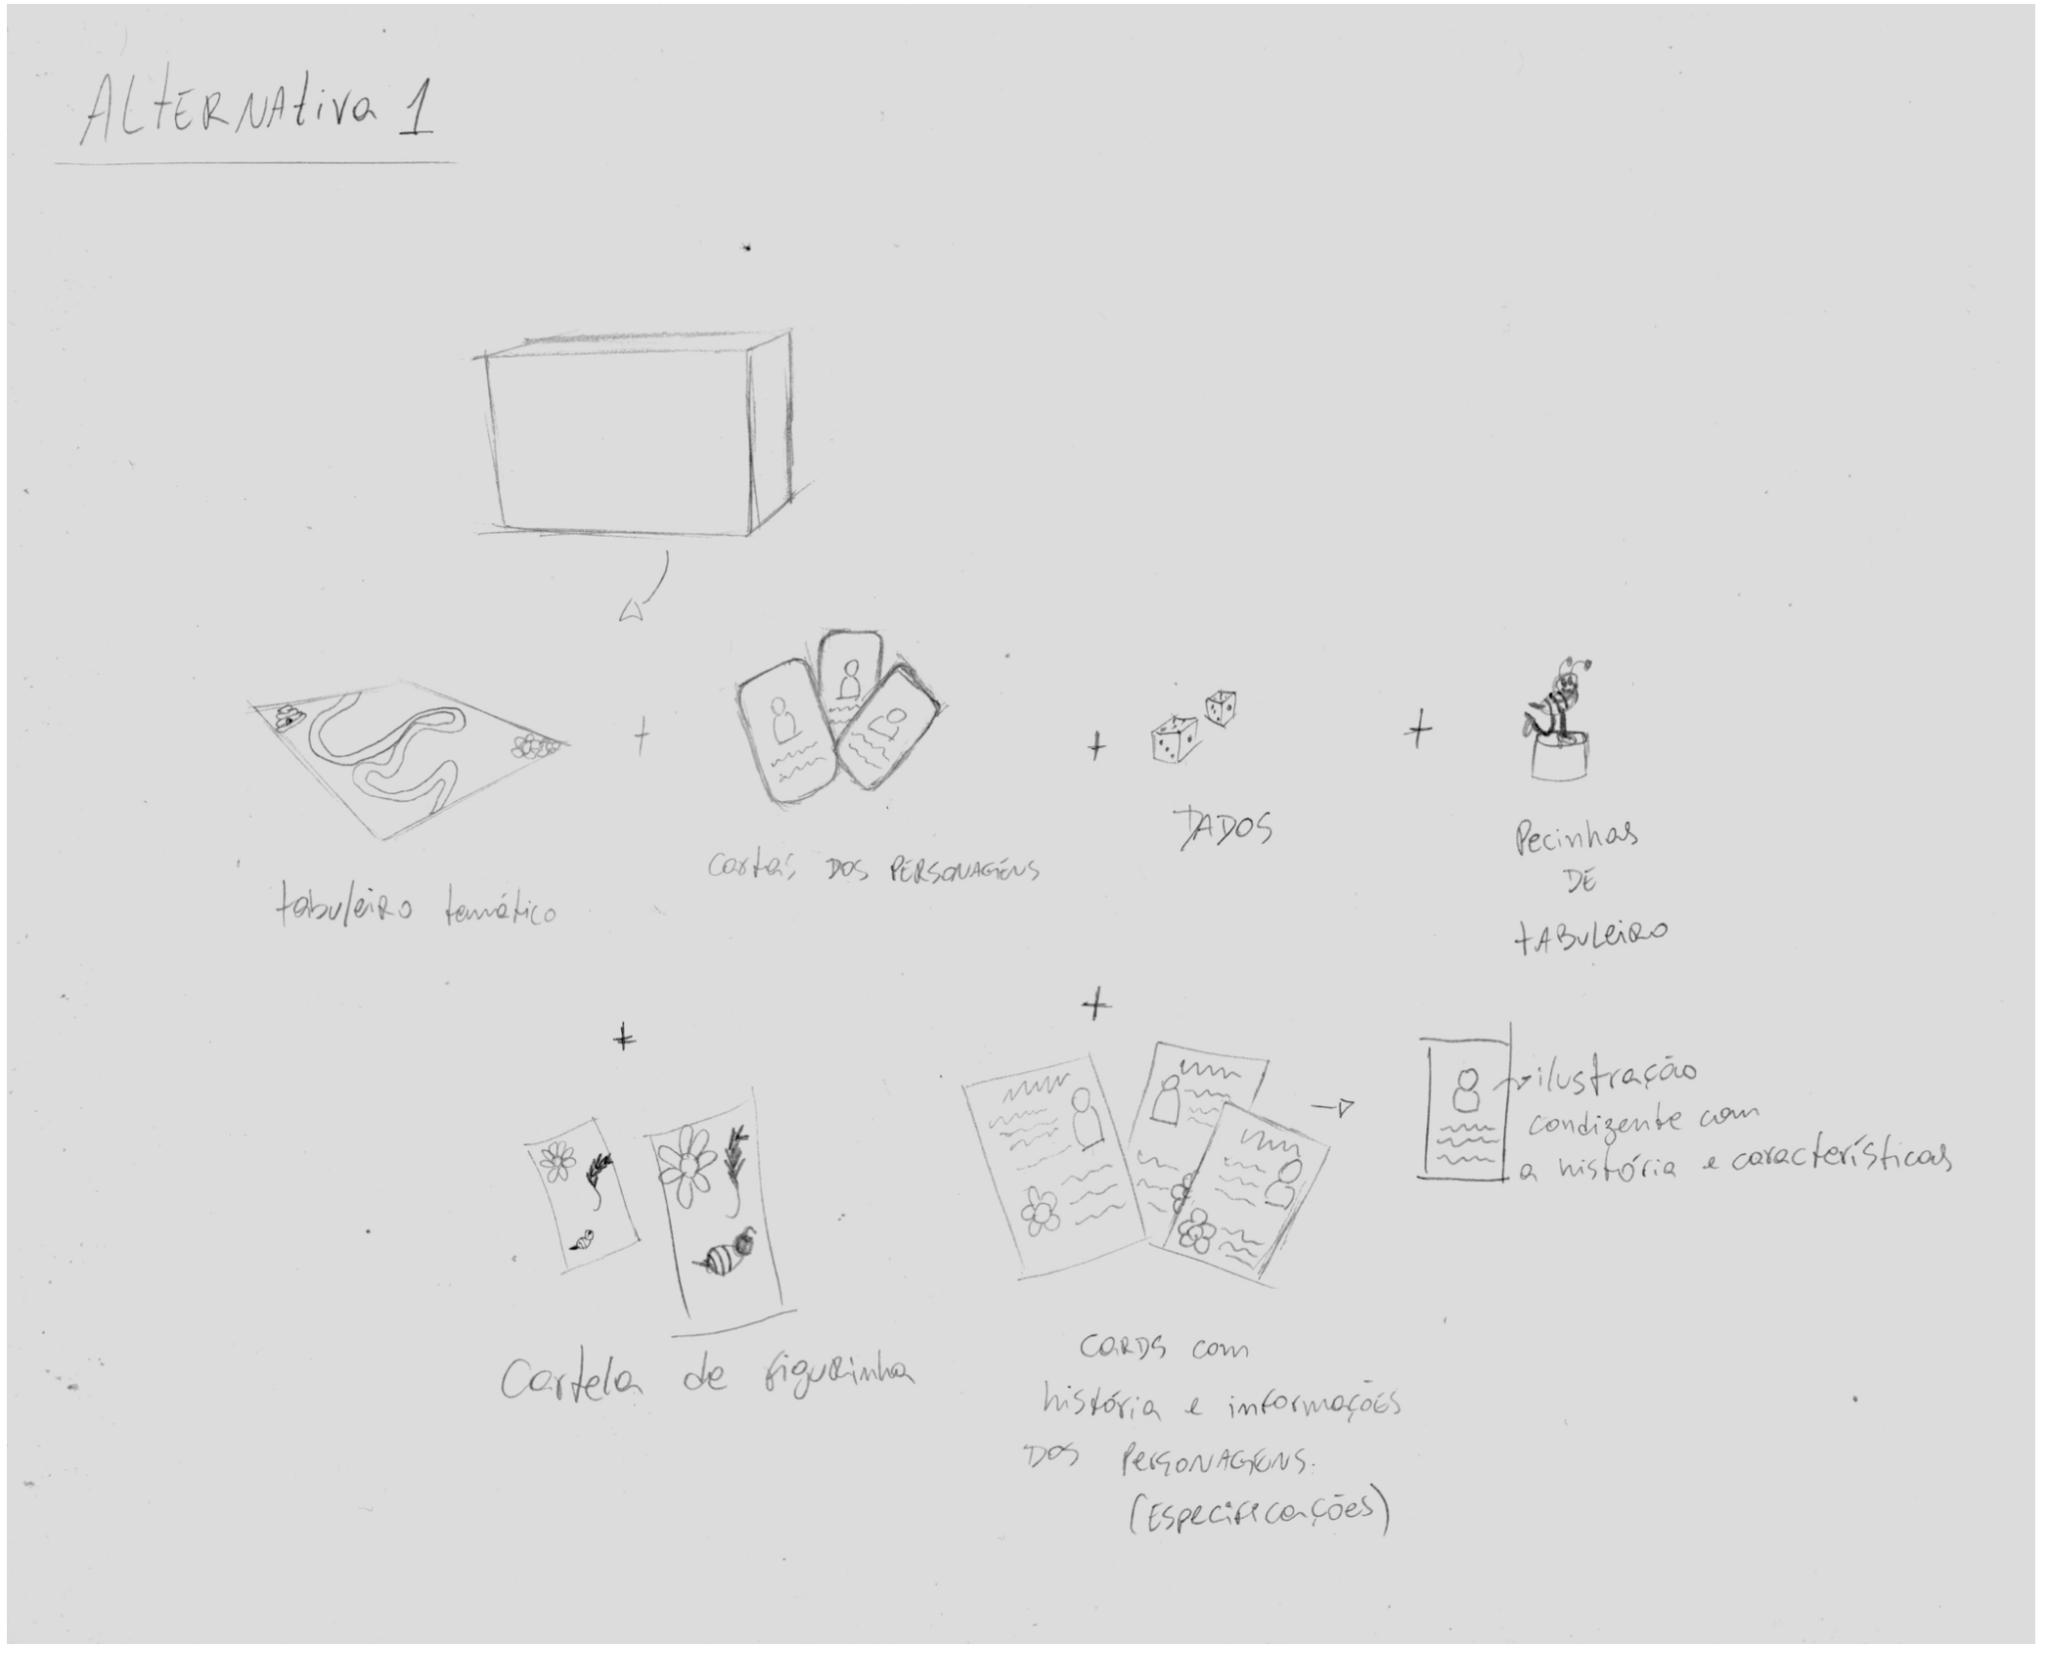 ALTERNAtiva 1
tabuleiRo temático
cartas DOS PERSONAGENS
DADOS
Pecinhas
DE
tABuLeiRo
Cartela de figuRinha
CARDS com
história e informações
DOS PersonAGENS.
(Especificações)
ilustração
condizente com
a história e características